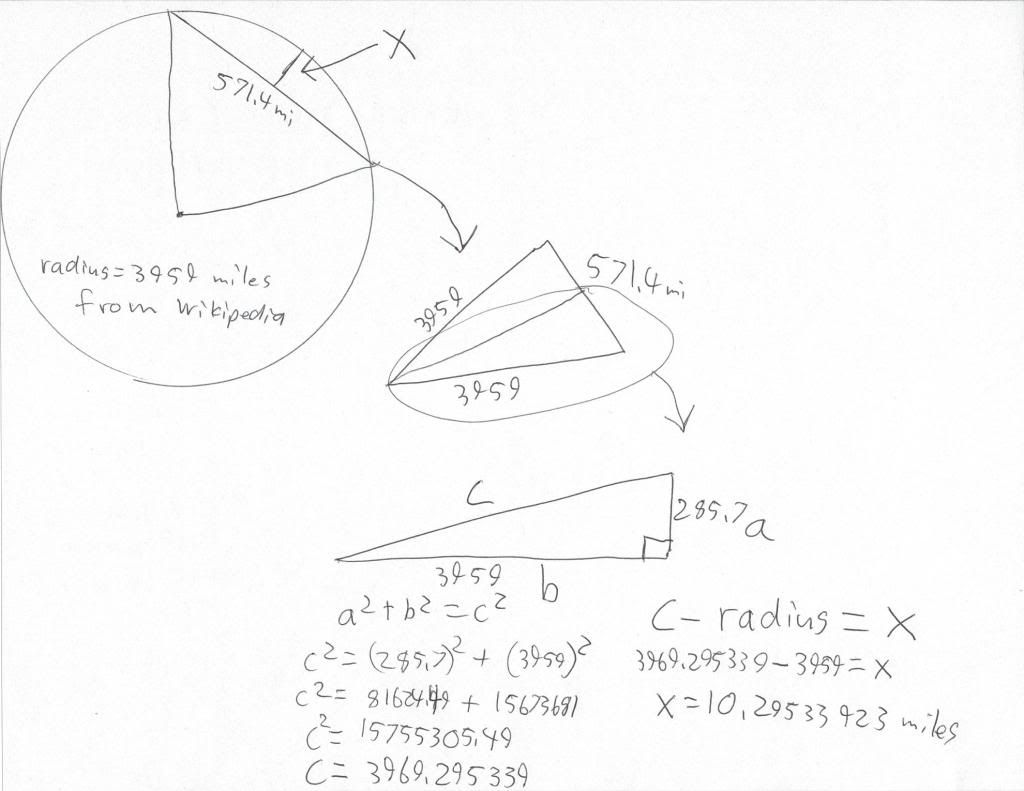 X
571.4 mi
radius=3959 miles
from Wikipedia
571.4 mi
3959
3959
c
285.7 a
3959
b
a²+b²=c²
c²=(285.7)²+(3959)²
c²= 81624.49 + 15673681
c²= 15755305.49
c= 3969.295339
C- radius = X
3969.295339-3959=x
X=10.29533923 miles